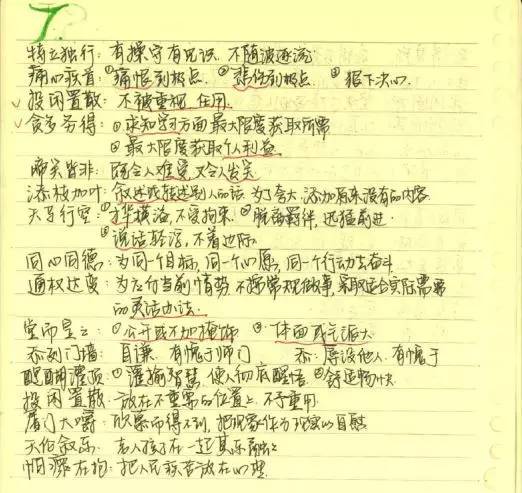 7.
特立独行：有操守有见识，不随波逐流
痛心疾首：①痛恨到极点 ②悲伤到极点 ③狠下决心.
投闲置散：不被重视 任用
贪多务得：①求知学习方面最大限度获取所需
②最大限度获取个人利益
啼笑皆非：既令人难受又令人发笑
添枝加叶：叙述或转述别人的话 为了夸大 添加原来没有的内容
天马行空：①才华横溢，不受拘束 ②脱离羁绊，迅猛前进.
③说话轻浮，不着边际
同心同德：为同一个目标，同一个心愿，同一个行动去奋斗
通权达变：为了应付当前情势 不按常规做事 采取适合实际需要
的灵活办法.
堂而皇之：①公开或不加掩饰 ②体面或气派大
忝列门墙：自谦，有愧于师门 忝：辱没他人，有愧于
醍醐灌顶：①灌输智慧 使人彻底醒悟 ②舒适畅快
投闲置散：放在不重要的位置上，不予重用
屠门大嚼：欣慕而得不到，把想象作为现实的自慰
天伦叙乐：老人孩子在一起其乐融融
恫瘝在抱：把人民疾苦放在心里.